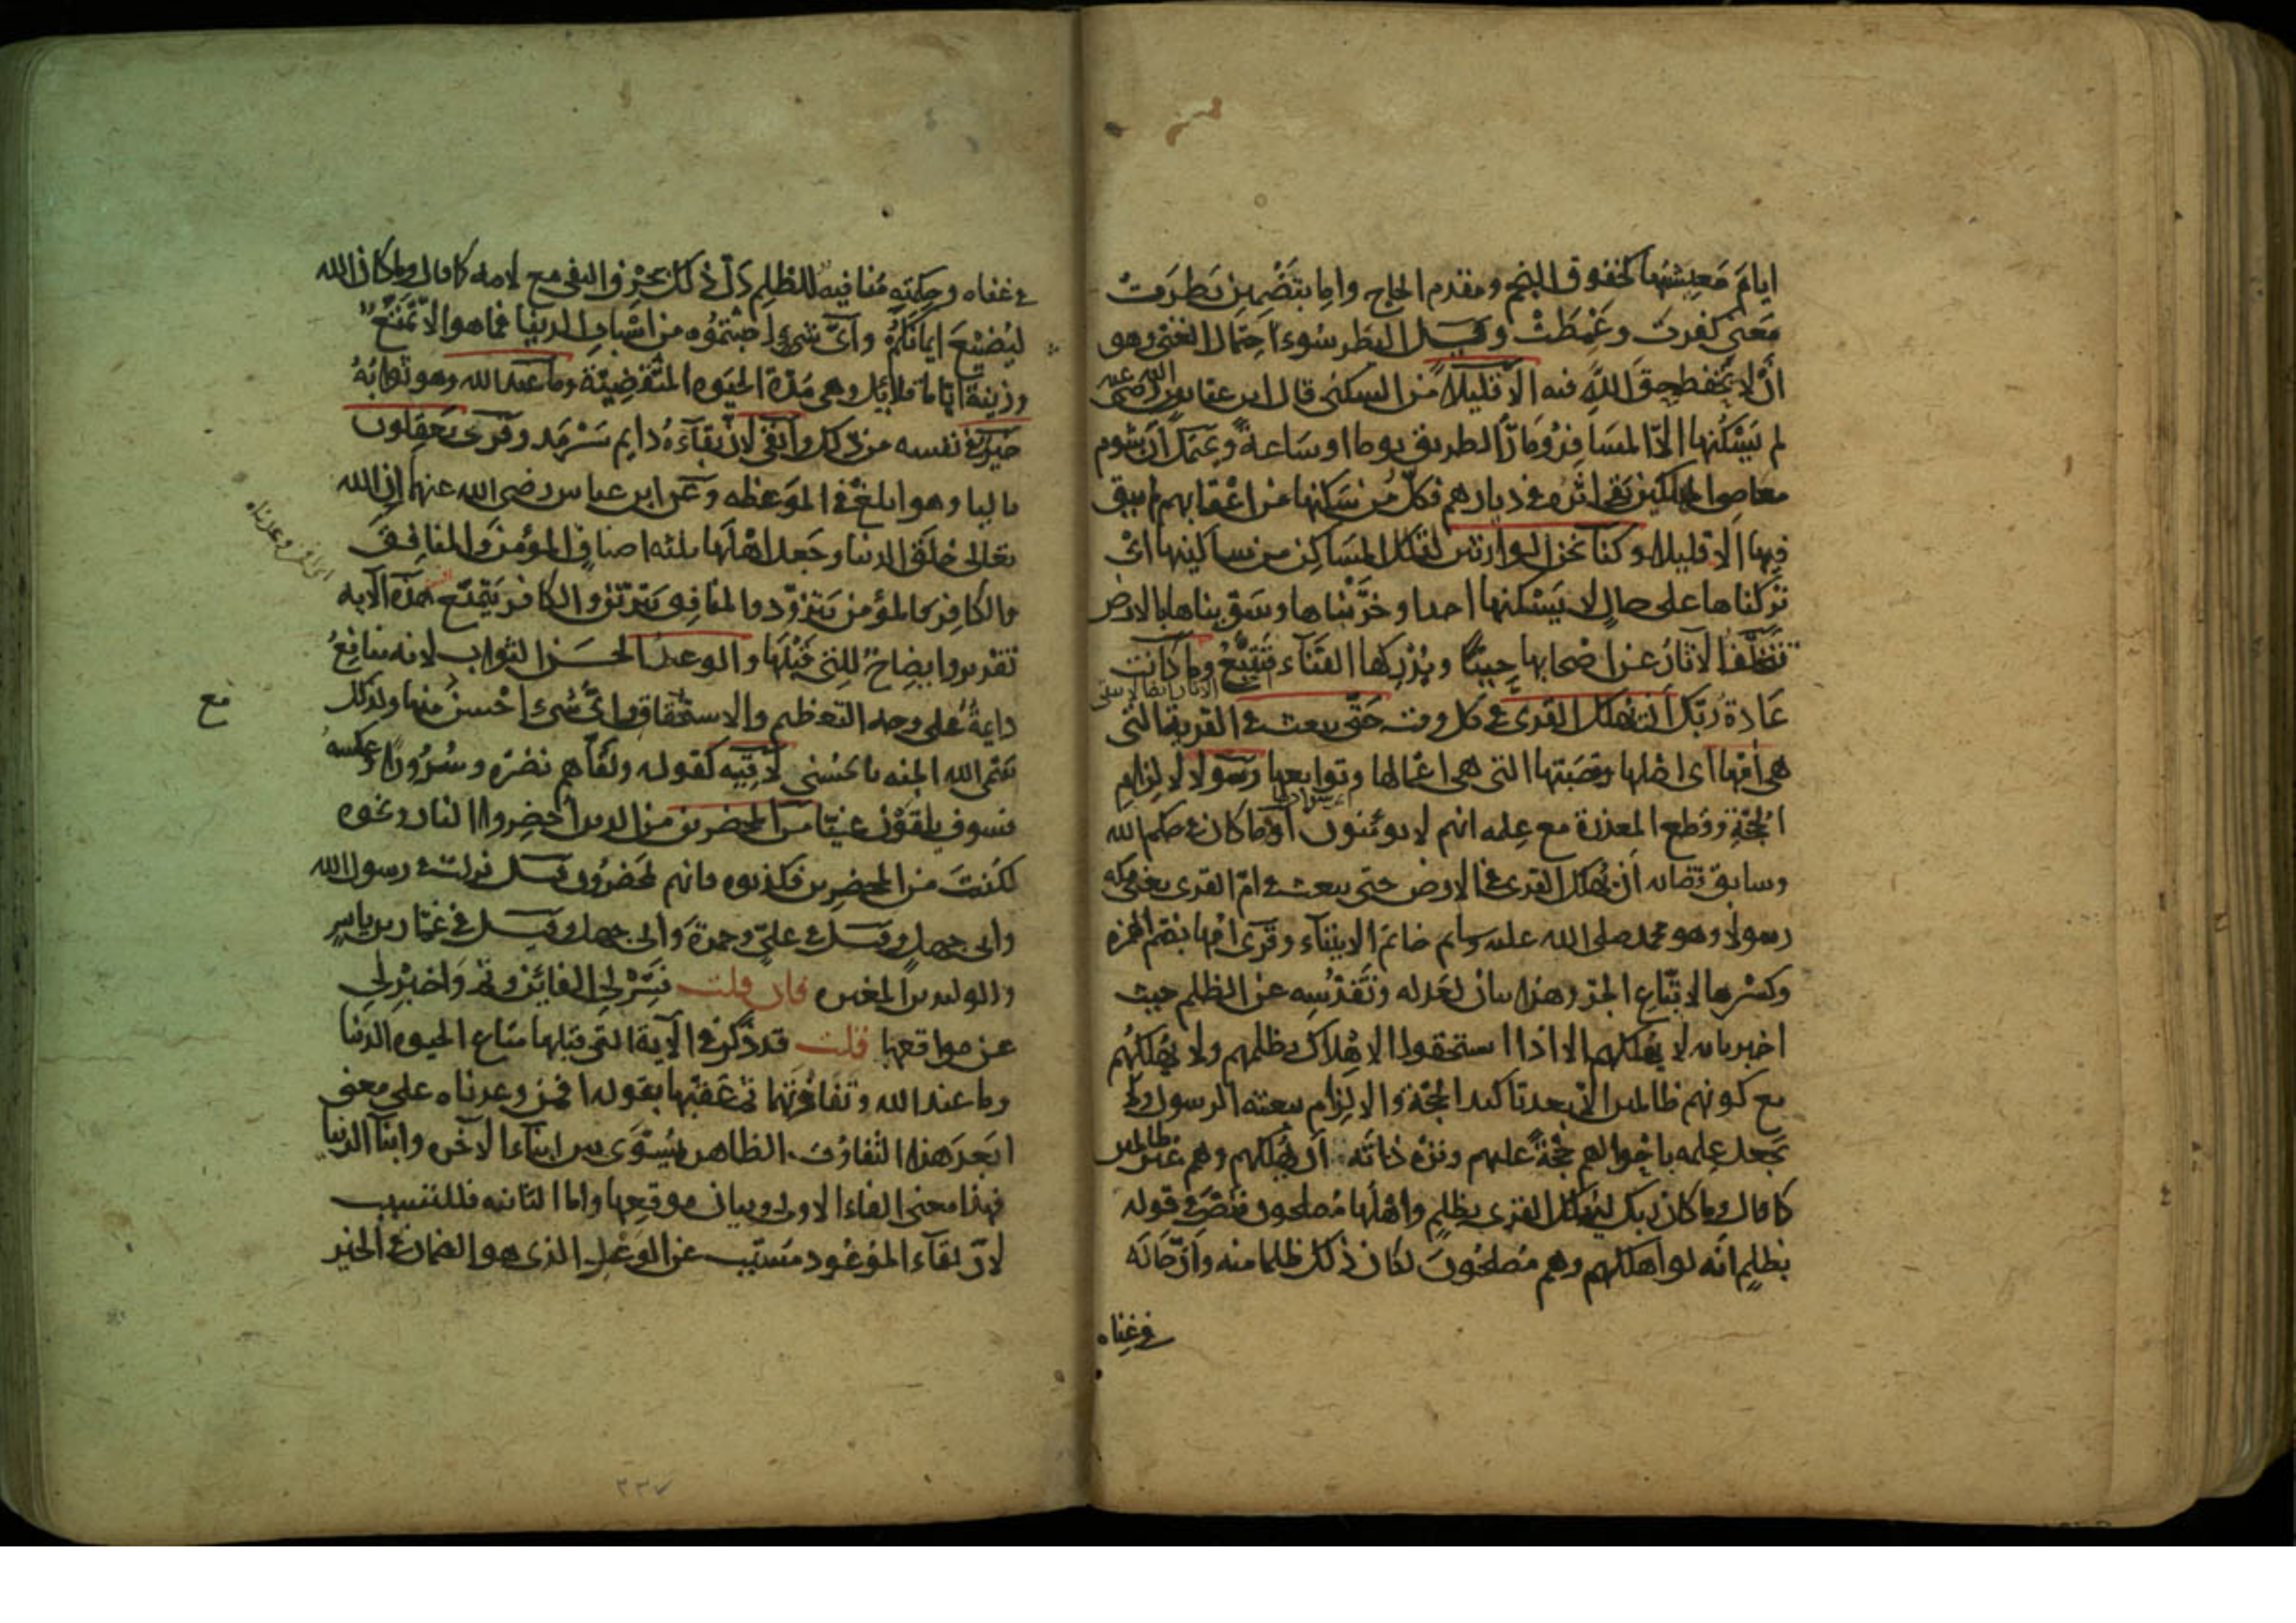 ايام مَعِيشَتِها كخفوق النجم ومقدم الحاج واما بتَضْمِين بَطِرَتْ
مَعنى كفرت وغَمِطَتْ وقيل البَطر سُوء احتمال الغنى وهو
انْ لا يَحْفظ حقَّ اللهِ فيه الا قليلاً من السكنى قال ابن عباس رضى الله عنه
لم يَسْكُنها الا المسَافِرُ ومَارُّ الطريق يوما او سَاعة ويحتمل اَنّ شوم
معاصى المهلكين بقى اثرُه في ديارهم فكلّ مَن سَكنها من اَعْقابهم لم يبق
فيها الا قليلا وكنا نحن الوارثين لتلك المسَاكِن من ساكنيها اىْ
تركناها على حالٍ لا يَسْكنها احد او خرَّبْناها وسَوّيناها بالارض
تتخلّفُ الآثارُ عن اصْحابها حِينًا ويُدْرِكها الفَنَآء فتَتْبَعُ وما كانت
الآثار ايضا لا تبقى
عَادة ربّك ان يُهلك القرى في كل وقت حَتّى يبعث في القرية التى
هى اُمّها اى اصْلها وقصَبَتها التى هى اعْمالها وتوابعها رسُولا لالزام
الحُجّةِ وقطع المعذرة مع عِلمه انهم لا يؤمنون اوْ وما كان في حكم الله
وسابق قضائه اَن يُهلك القرى في الارض حتى يبعث في امّ القرى يعنى مكه
رسولا وهو محمد صلى الله عليه وسلم خاتم الانبياء وقُرئ اُمّها بضم الهمزه
وكسْرِها لاتّباع الجرّ وهذا بيان لعَدله وتَقَدُّسِه عن الظلم حيث
اخبر بانه لا يُهلكهم الا اذا استحقوا الاهْلاك بظلمهم ولا يُهْلكُهم
مع كونهم ظالمين الا بعد تاكيد الحُجّة والالزام ببعثه الرسول ولم
يَجعل عِلمه باحْوالهم حُجّةً عليهم ونزّه ذاتَه اَن يُهلكهم وهم غير ظالمين
كما قال وما كان ربك ليُهلك القرى بظلمٍ واَهْلُها مُصلحون فنَصَّ في قوله
بظلمٍ اَنّه لو اهلكهم وهم مُصلحُونَ لكان ذلك ظلما منه وانّ حَالَه
في غِناه
في غناه وحِكمَتِه مُنافيه للظلمِ دَلّ على ذلك بحَرْف النفى مع لامه كما قال وما كان الله
ليُضيعَ ايمَانَكمْ وَاىّ شىءٍ اصَبْتمُوْه من اسْبابِ الدنيا فما هو الّا تَمَتّعٌ
وزينةٌ ايّامًا قلائِل وهى مُدّة الحَيوه المتقضيّة وما عند الله وهو ثوابُهُ
خَيرٌ في نفسه من ذلك وابْقى لانّ بقاءَه دايم سَرْمَد وقرئ يَعقِلون
باليا وهو ابلغُ في الموعظه وعن ابن عباس رضى الله عنهما ان الله
تعالى خلق الدنيا وجَعل اهْلَها ثلثه اصنافٍ المؤمن والمنافِق
والكافِر فالمؤمن يَتزوّد والمنافِق يَتَزيّنُ والكافر يَتمتّع هذه الآيه
افمن وعدناه
تقْرير وايضاحٌ للتى قبْلَها والوعدُ الحَسَن الثواب لانه مَنافِعُ
دايمةٌ على وجه التعظيم والاستحقاق واىُّ شىءٍ احْسَنُ منها ولذلك
مع
سَمّى الله الجنه بالحُسْنى لاقيه كقوله ولَقّاهم نضْرَةً وسُرُورًا وعكسه
فسوف يلقَوْن غيّا من المحضَرين من الذين اُحْضِروا النار ونحوه
لكنتَ من المحضرين فكذبوه فانهم لمحْضَرُون قيل نزلت في رسول الله
وابى جهل وقيل في علىٍّ وحمزةَ وابى جهل وقيل في عَمّار بن ياسرٍ
والوليد بن المغيره فان قلت فَسِّرْ لى الفائين وثمّ وَاَخبِرْنى
عن مواقعها قلت قد ذُكر في الآية التى قبلها متاع الحيوه الدنيا
وما عند الله وتَفاوُتهما ثم عَقّبَها بقوله افمن وعدناه على معنى
ابَعدَ هذا التفاوُت الظاهر يُسَوّى بين ابناءِ الآخره وابناء الدنيا
فهذا معنى الفاء الاولى وبيان موقعها واما الثانيه فللتسبيب
لانّ لقاء المَوْعُود مسَبّب عن الوَعْدِ الذى هو الضمان في الخير
٢٣٧